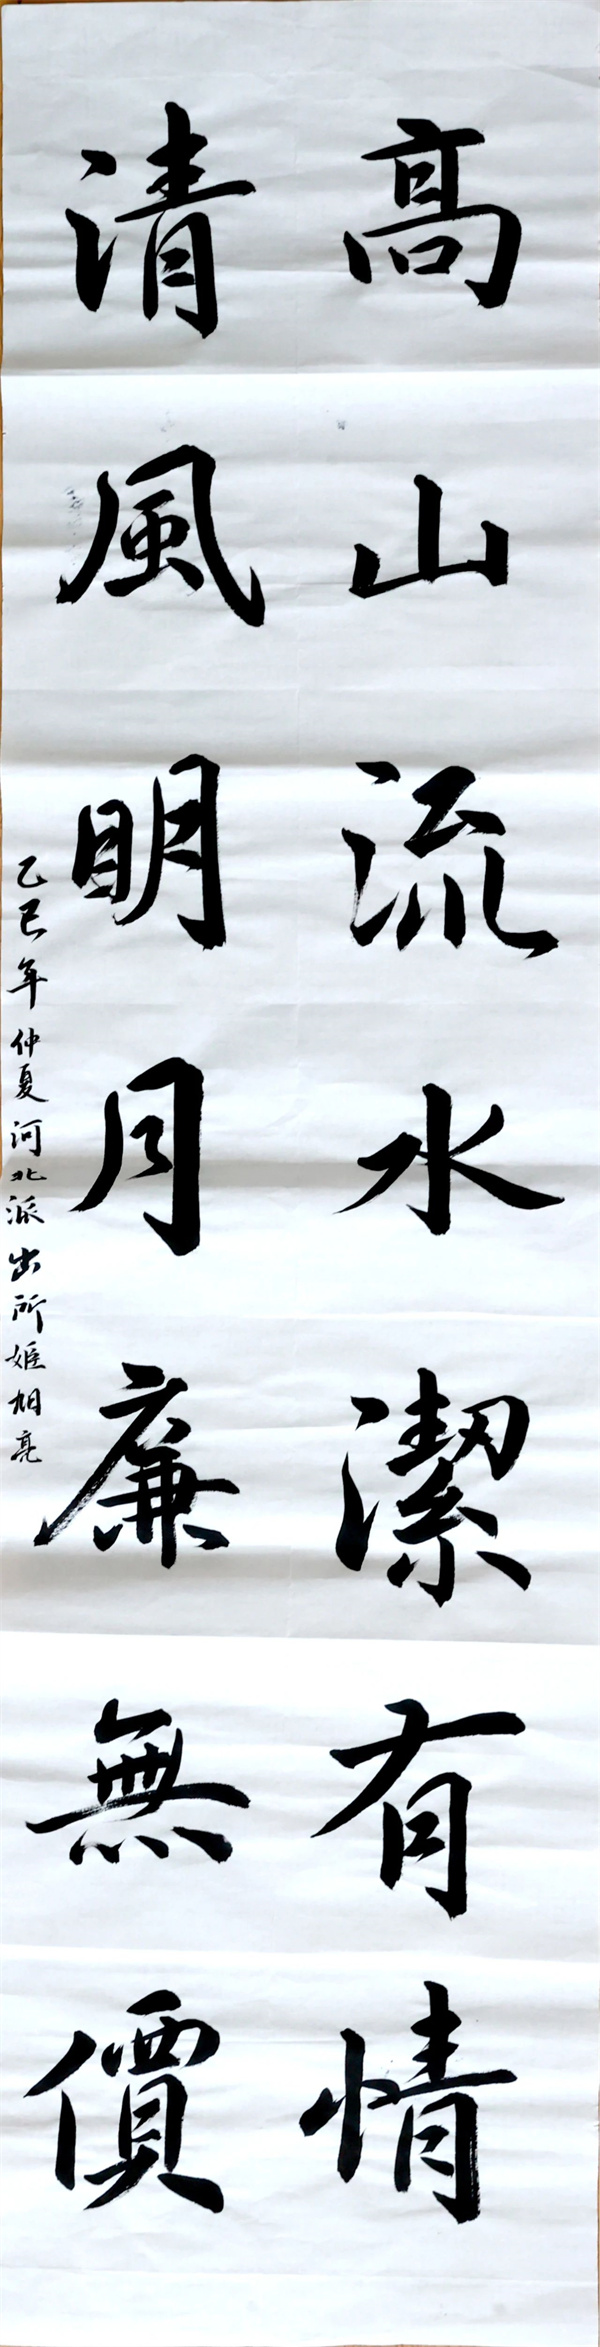 高山流水潔有情
清風明月廉無價
乙巳年仲夏河北派出所姬旭亮